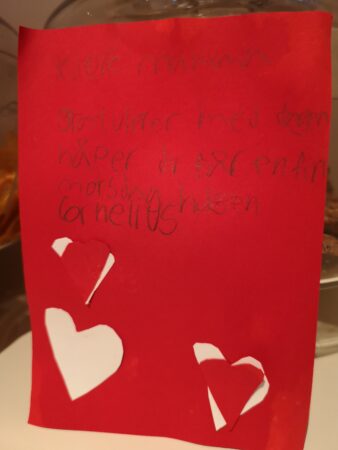 kjære mamma
Gratulerer med dagen
håper du får en fin
morsdag hilsen
Cornelius